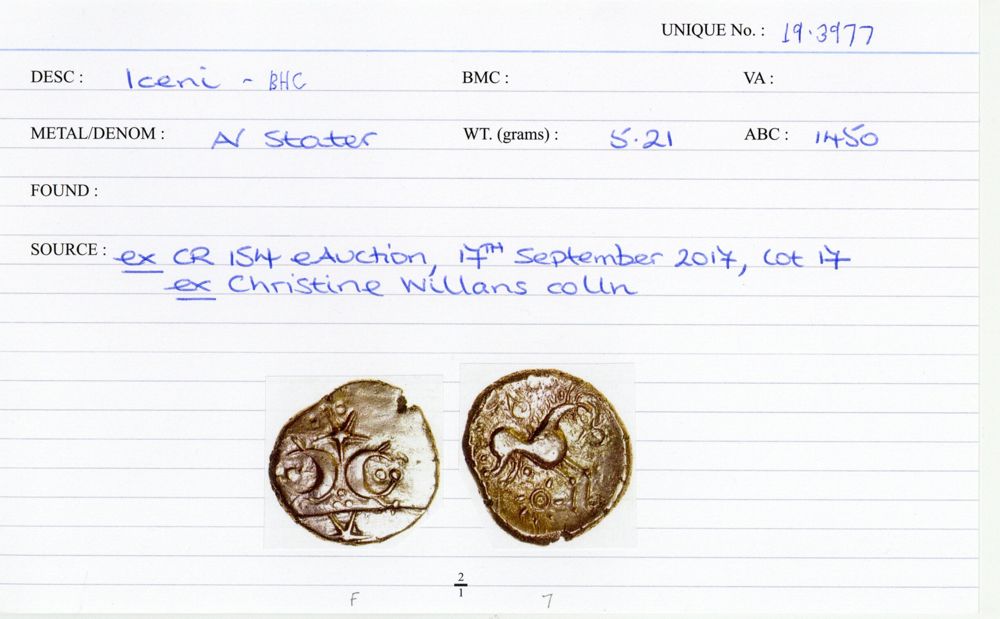 UNIQUE No. : 19.3977
DESC : Iceni - BHC BMC : VA :
METAL/DENOM : AV Stater WT. (grams) : 5.21 ABC : 1450
FOUND :
SOURCE : ex CR 154 eAuction, 17TH September 2017, Lot 17
ex Christine Willans colln
2
1
F 7